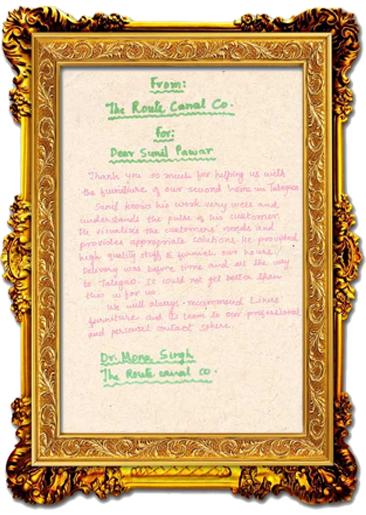 From:
The Route Canal Co.
For:
Dear Sunil Pawar
Thank you so much for helping us with
the furniture of our second home in Talegao
Sunil knows his work very well and
understands the pulse of his customer.
He visualise the customers' needs and
provides appropriate solutions. He provided
high quality stuff &  our hours.
Delivery was before time and all the way
to Talegao. It could not get better than
this is for us.
We will always recommend Lines
furniture and  team to our professional
and personal contact sphere.
Dr. Mona Singh
The Route canal co.